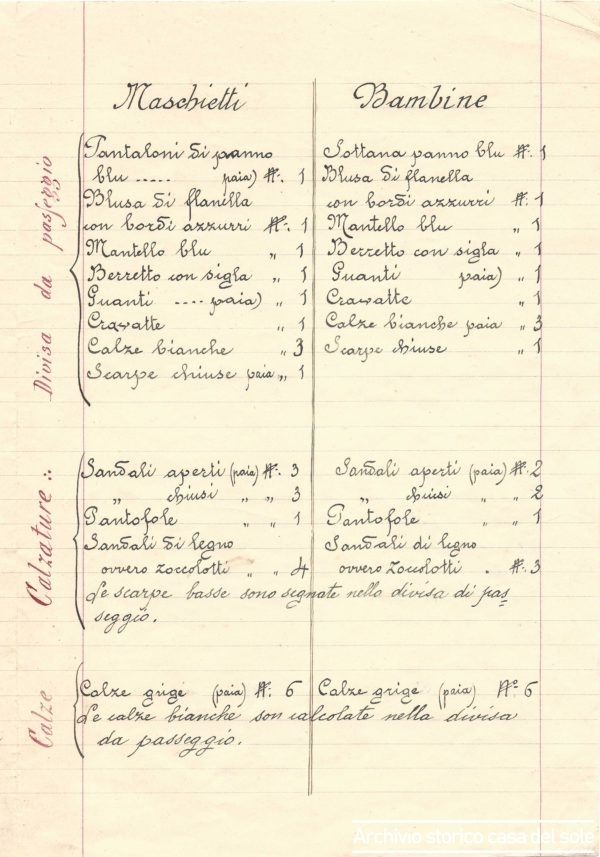 Maschietti
Divisa da passeggio
Pantaloni di panno
blu ..... paia) N. 1
Blusa di flanella
con bordi azzurri N. 1
Mantello blu „ 1
Berretto con sigla „ 1
Guanti .... paia) „ 1
Crawatte „ 1
Calze bianche „ 3
Scarpe chiuse paia „ 1
Bambine
Sottana panno blu N. 1
Blusa di flanella
con bordi azzurri N. 1
Mantello blu „ 1
Berretto con sigla „ 1
Guanti paia) „ 1
Crawatte „ 1
Calze bianche paia „ 3
Scarpe chiuse „ 1
Calzature :.
Sandali aperti (paia) N. 3
„ chiusi „ „ 3
Pantofole „ „ 1
Sandali di legno
ovvero zoccolotti „ „ 4
Sandali aperti (paia) N. 2
„ chiusi „ „ 2
Pantofole „ „ 1
Sandali di legno
ovvero zoccolotti . N. 3
Le scarpe basse sono segnate nello divisa di pas=
seggio.
Calze
Calze grige (paia) N. 6
Calze grige (paia) No 6
Le calze bianche son calcolate nella divisa
da passeggio.
Archivio storico casa del sole